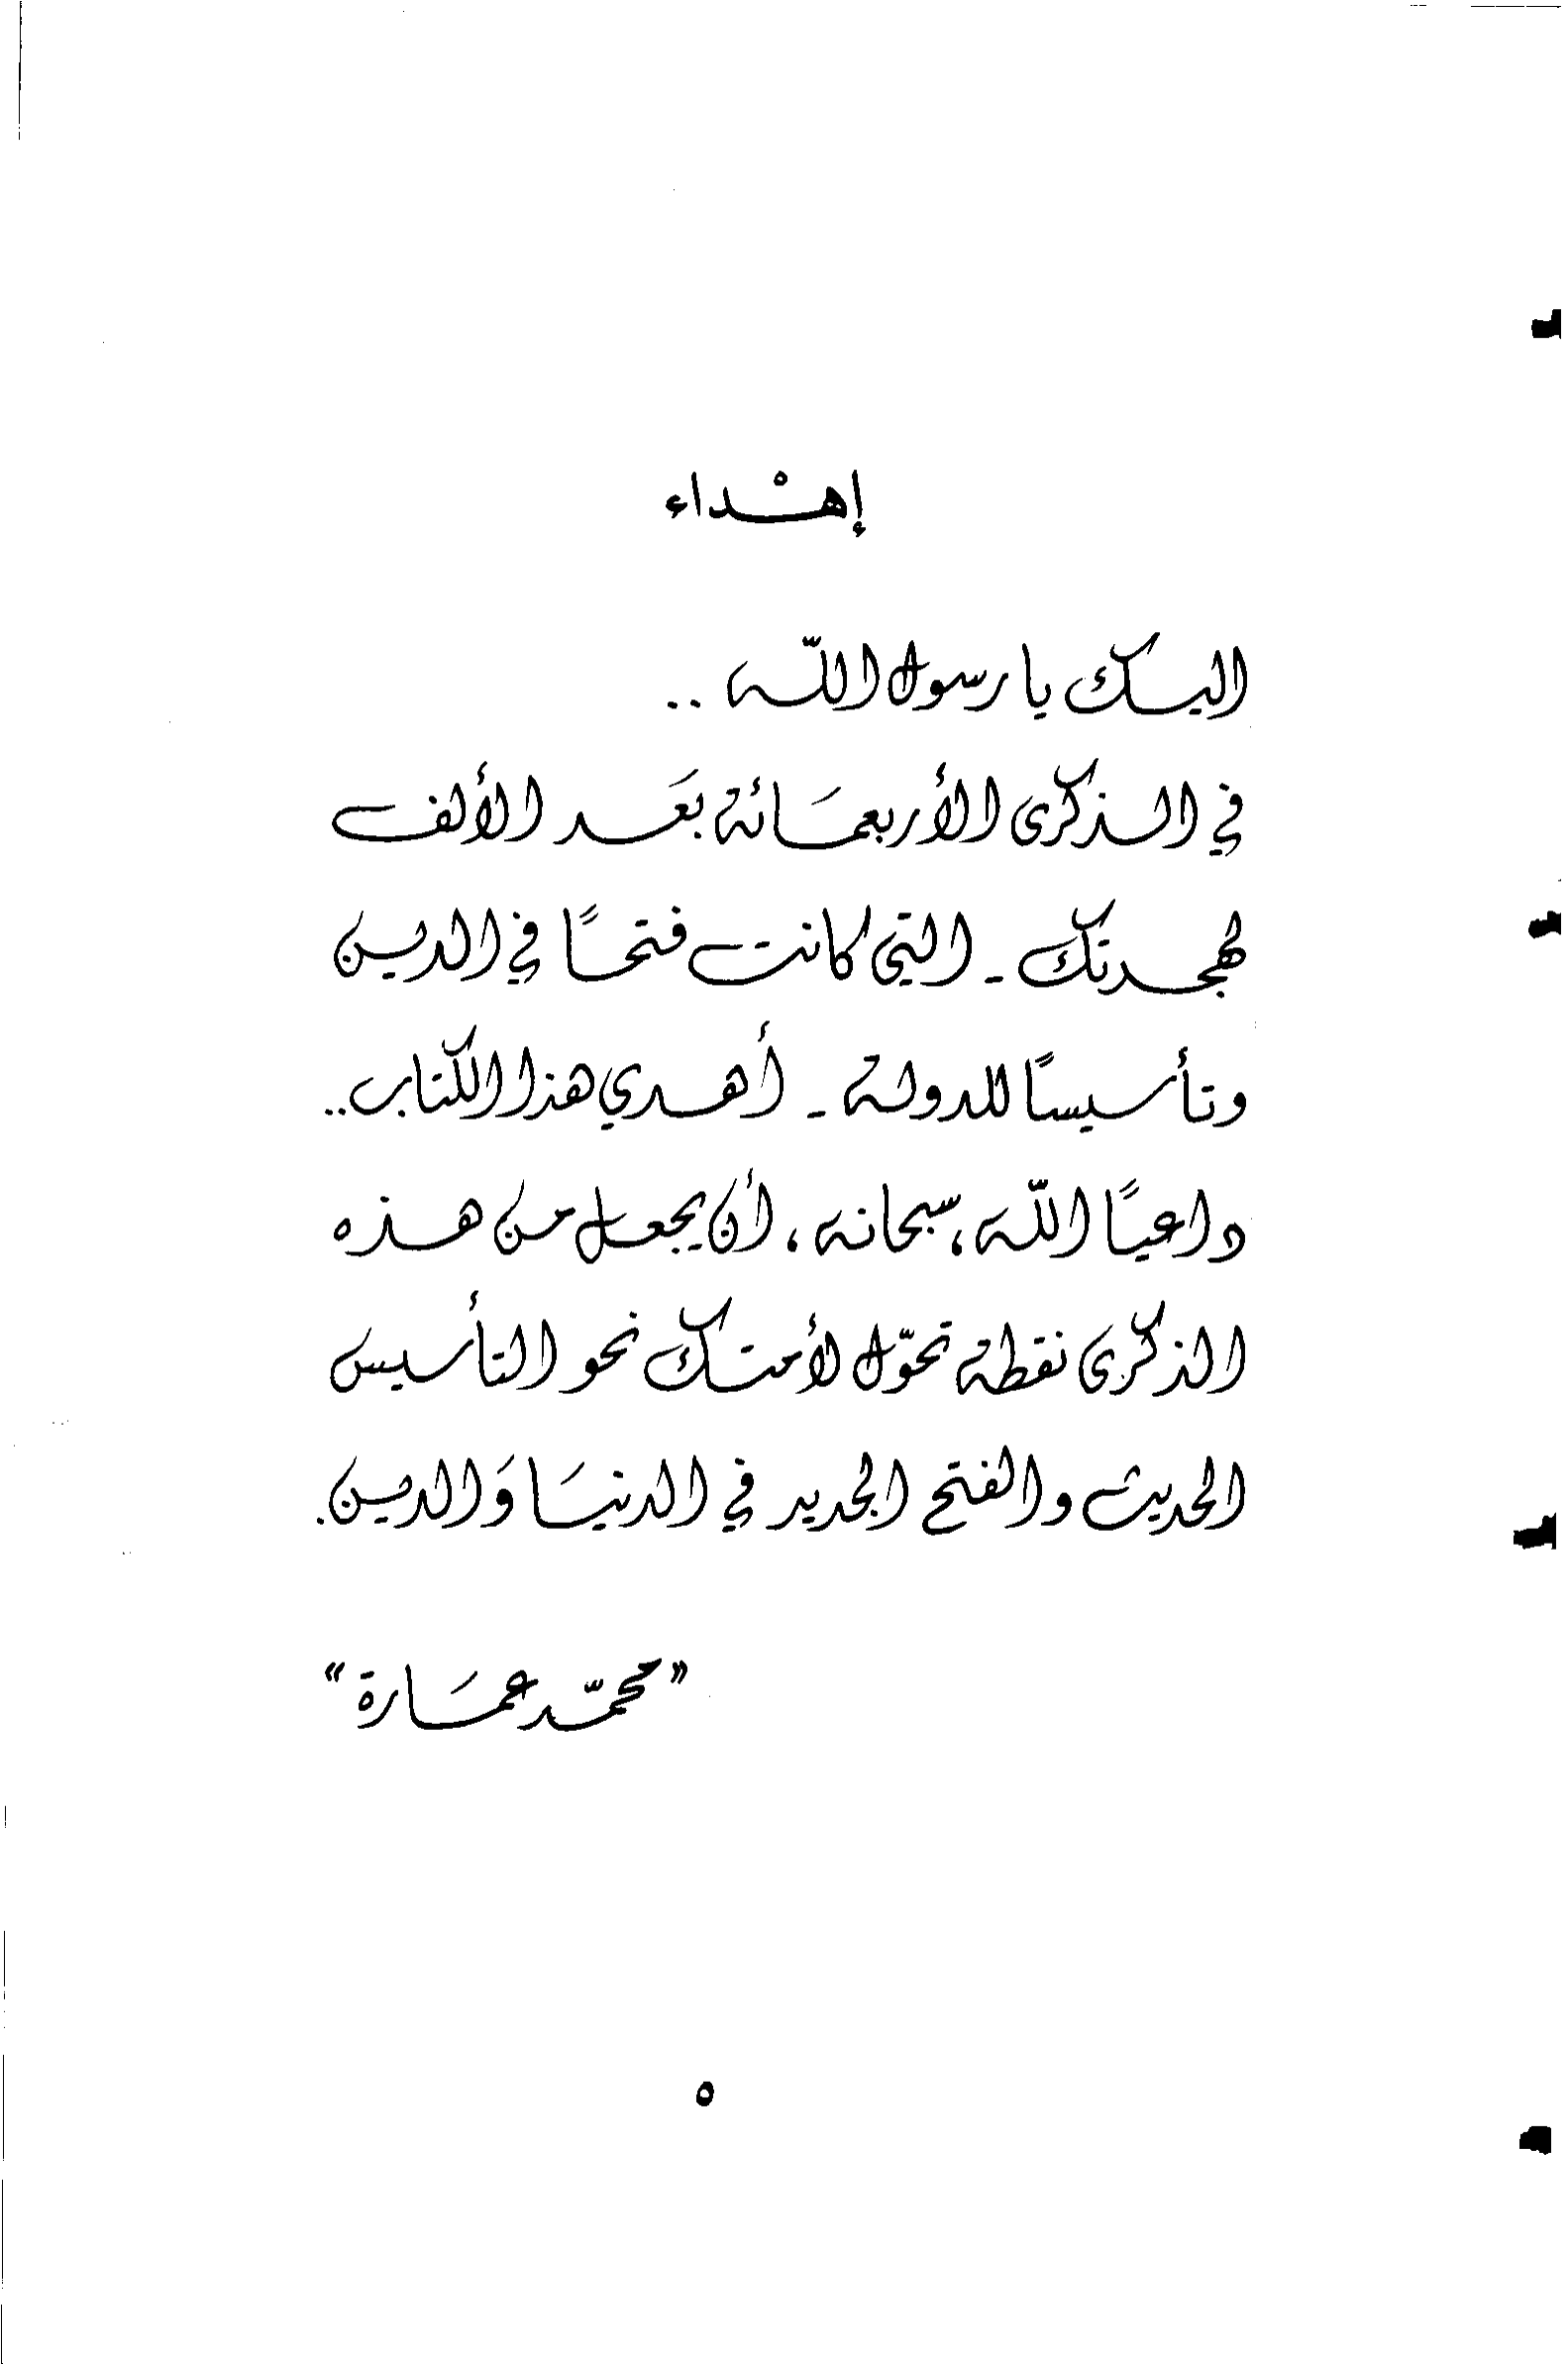 إهْداء
اليك يا رسول اللّه ..
في الذكرى الأربعمَائة بعَد الألف
لهجرتك - التي كانت فتحًا في الدين
وتأسيسًا للدولة - أهدي هذا الكتاب ..
داعيًا اللّه، سبحانه، أن يجعل من هذه
الذكرى نقطة تحوّل لأمتك نحو التأسيس
الحديث والفتح الجديد في الدنيَا وَالدين.
"محمّد عمَارة"
٥